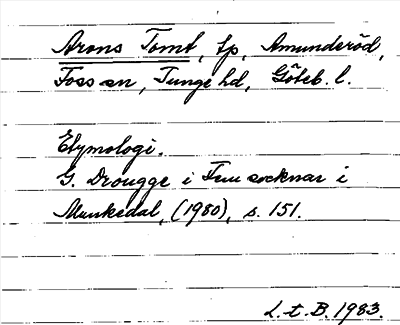 Arons Tomt, tp, Amunderöd,
Foss sn, Tunge hd, Göteb. l.
Etymologi.
G. Drougge i Fem socknar i
Munkedal, (1980), s. 151.
L.t.B. 1983.